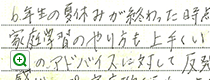 6年生の夏休みが終わった時点
家庭学習のやり方も上手くい
のアドバイスに対して反発